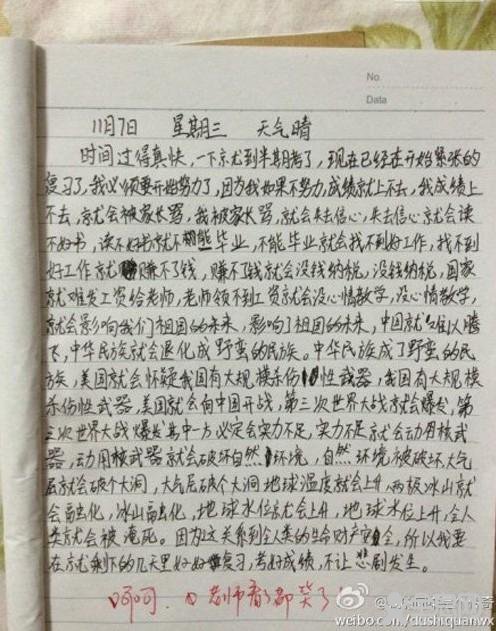 No.
Data
11月7日 星期三 天气晴
时间过得真快,一下就到半期考了,现在已经在开始紧张的
复习了,我必须要开始努力了,因为我如果不努力,成绩就上不去,我成绩上
不去,就会被家长骂,我被家长骂,就会失去信心,失去信心就会读
不好书,读不好书就不能毕业,不能毕业就会找不到好工作,找不到
好工作就赚不了钱,赚不了钱就会没钱纳税,没钱纳税,国家
就难发工资给老师,老师领不到工资就会没心情教学,没心情教学,
就会影响我们祖国的未来,影响了祖国的未来,中国就难以腾
飞,中华民族就会退化成野蛮的民族。中华民族成了野蛮的民
族,美国就会怀疑我国有大规模杀伤性武器,我国有大规模
杀伤性武器,美国就会向中国开战,第三次世界大战就会爆发,第
三次世界大战爆发其中一方必定会实力不足,实力不足就会动用核武
器,动用核武器就会破坏自然环境,自然环境被破坏,大气
层就会破个大洞,大气层破个大洞地球温度就会上升,两极冰山就
会融化,冰山融化,地球水位就会上升,地球水位上升,全人
类就会被淹死。因为这关系到全人类的生命财产安全,所以我要
在就剩下的几天里好好复习,考好成绩,不让悲剧发生。
呵呵, 老师看了都笑了!
weibo.com/dushiquanwx